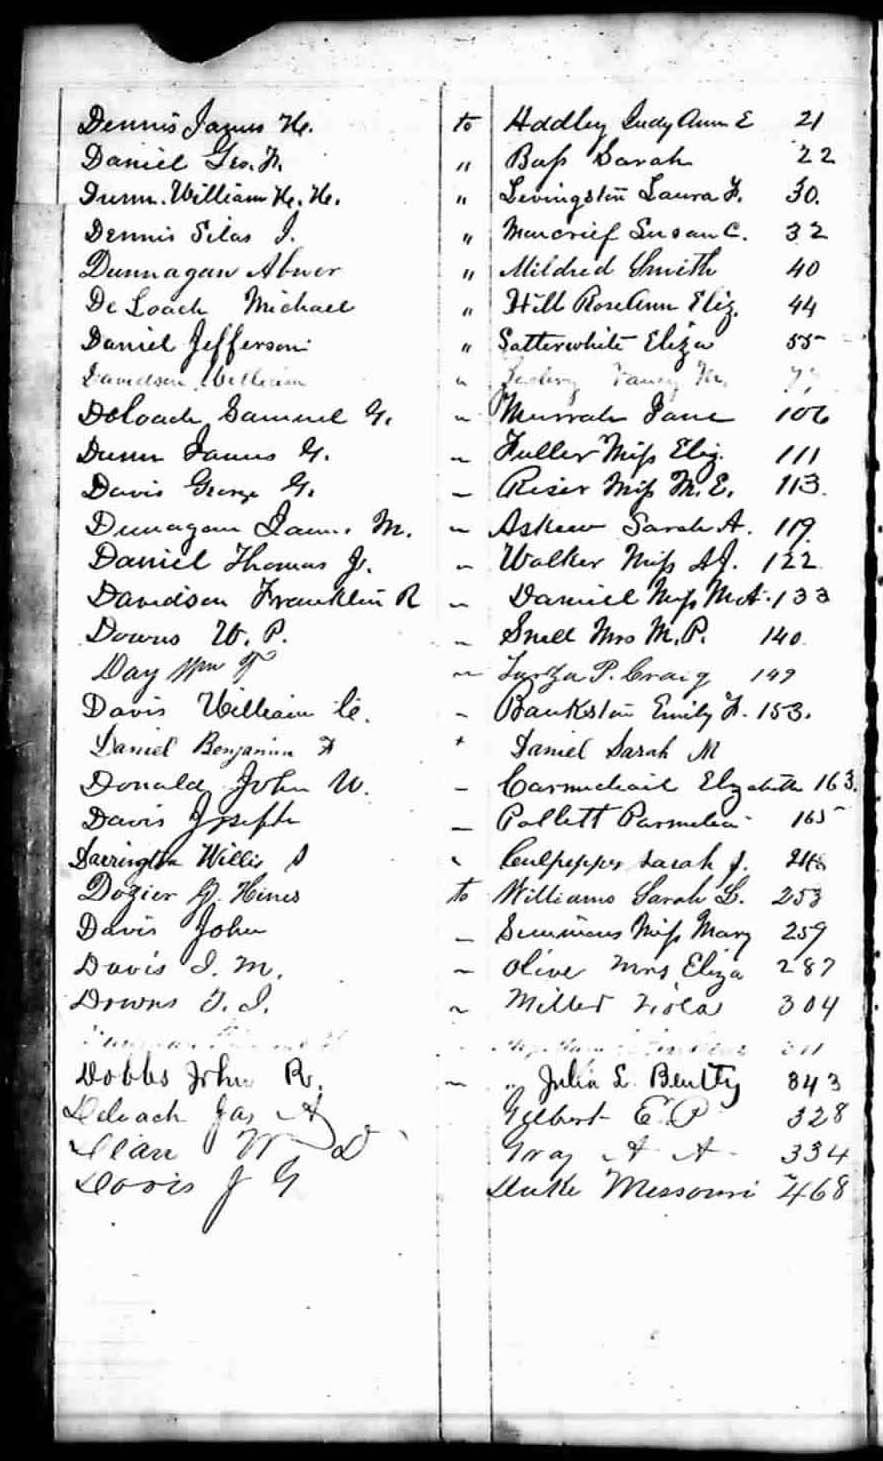 Dennis James H. to Hoddley Judy Ann E 21
Daniel Geo. F. " Bass Sarah 22
Dunn. William H. H. " Levingston Laura F. 30.
Dennis Silas J. " Moncrief Susan C. 32
Dunnagan Abner " Mildred Smith 40
De Loach Michael " Hill Rose Ann Eliz. 44
Daniel Jefferson " Satterwhite Eliza 55
Davidson William "
DeLoach Samuel G. " Murrah Jane 106
Dunn James G. " Fuller Miss Eliz. 111
Davis George G. " Reiser Miss M. E. 113.
Dunagan James M. " Askew Sarah A. 119.
Daniel Thomas J. " Walker Miss A J. 122
Davidson Franklin R " Daniel Miss M A. 133
Downs W. P. " Snell Mrs M. P. 140.
Day Wm F " P. Craig 149
Davis William C. " Bankston Emily F. 153.
Daniel Benjamin F " Daniel Sarah M
Donald John W. " Carmichail Elizabeth 163.
Davis Joseph " Pollett Parmelia 165
Darrington Willis S " Culpepper Sarah J.
Dozier G. Hines to Williams Sarah L. 253
Davis John " Simmons Miss Mary 259
Davis J. M. " Olive Mrs Eliza 287
Downs T. J. " Miller Viola 304
Dobbs John R. " " Julia L. Bentty 343
Deloach Jas A Gilbert E. P 328
Dean W D Gray A A 334
Davis J G Duke Missouri 468